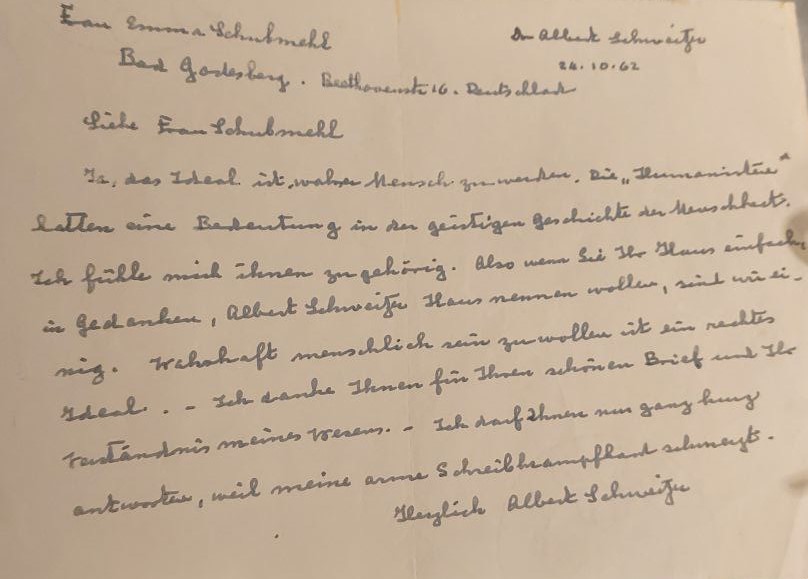 Frau Emma Schubmehl
Dr Albert Schweitzer
24.10.62
Bad Godesberg. Beethovenstr 16. Deutschland
Liebe Frau Schubmehl
Ja, das Ideal ist, wahrer Mensch zu werden. Die „Humanisten"
hatten eine Bedeutung in der geistigen Geschichte der Menschheit.
Ich fühle mich ihnen zu gehörig. Also wenn Sie Ihr Haus einfach,
in Gedanken, Albert Schweitzer Haus nennen wollen, sind wir ei-
nig. Wahrhaft menschlich sein zu wollen ist ein rechtes
Ideal. - Ich danke Ihnen für Ihren schönen Brief und Ihr
Verständnis meines Wesens. - Ich darf Ihnen nur ganz kurz
antworten, weil meine arme Schreibkrampfhand schmerzt.
Herzlich Albert Schweitzer